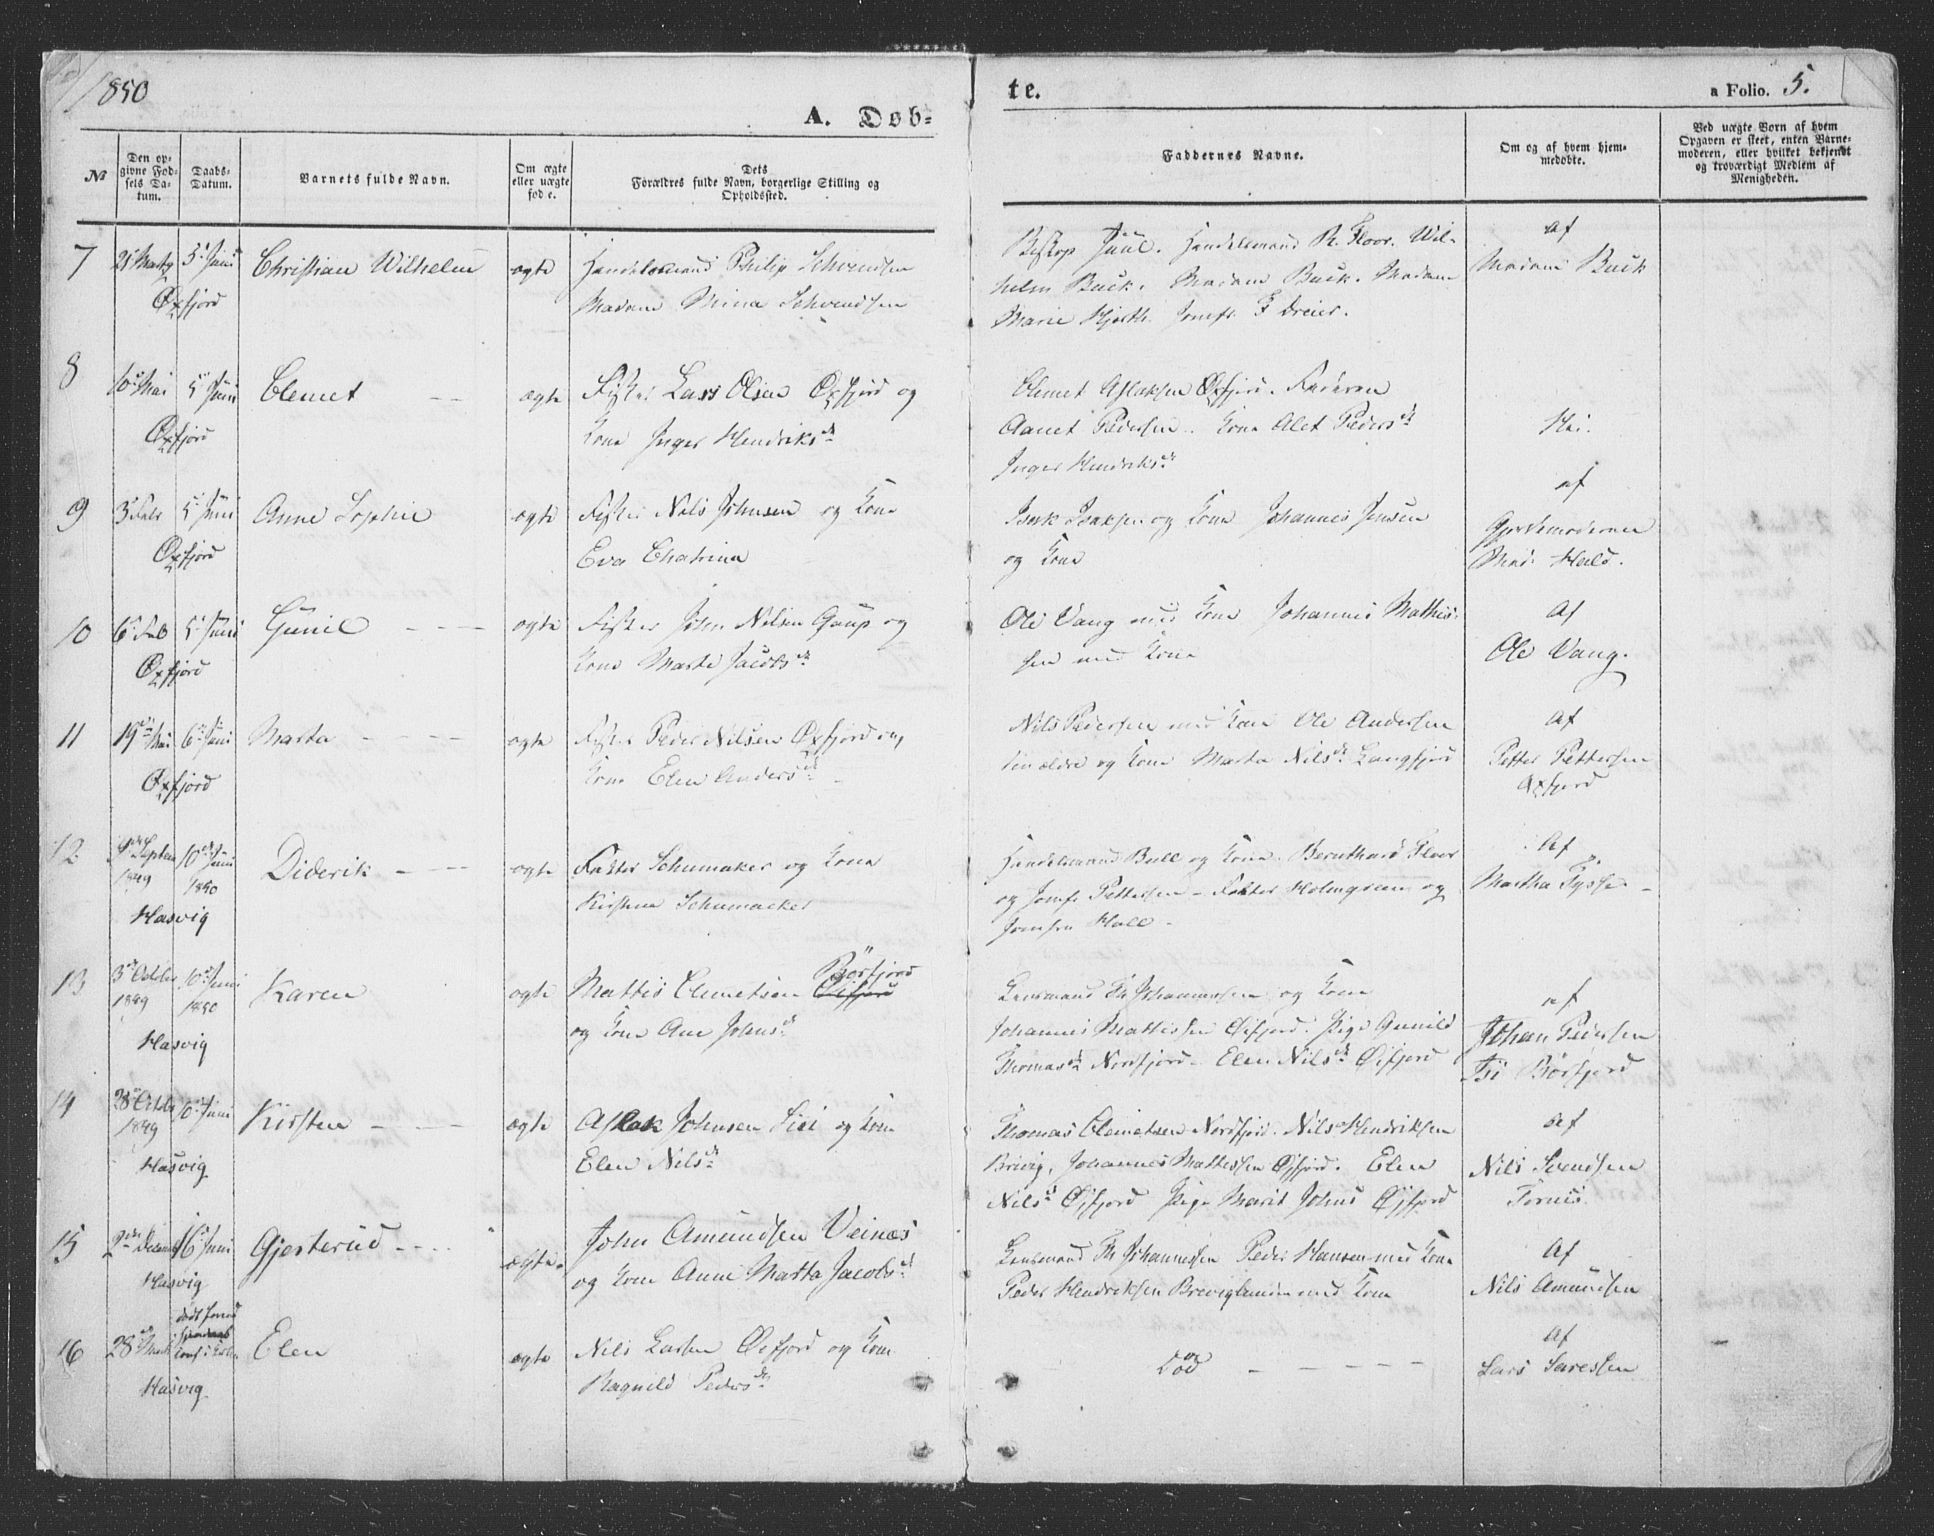 1850
A. Døb-
te.
a Folio. 5.
№
Den op-
givne Fød-
sels Da-
tum.
Daabs-
Datum.
Barnets fulde Navn.
Om ægte
eller uægte
fød e.
Dets
Forældres fulde Navn, borgerlige Stilling og
Opholdssted.
Faddernes Navne.
Om og af hvem hjem-
medøbte.
Ved uægte Børn af hvem
Opgaven er skeet, enten Barne-
moderen, eller hvilket bekjendt
og troværdigt Medlem af
Menigheden.
7
5 Juni
Christian Wilhelm
ægte
Handelsmand Philip Schvendsen
Madam Mina Schvendsen
Øxfjord
Biskop Juul. Handelsmand R. Floor. Wil-
helm Buck. Madam Buck. Madam
Marie Hjelth. Jomfr. F Dreier.
af
Madam Buck
8
10 Mai
5 Juni
Clemet
ægte
Fisker Lars Olsen Øxfjord og
Kone Inger Hendriksd.
Øxfjord
Clemet Aslaksen Øxfjord. Faderen
Pedersen. Kone Alet Pedersd.
Inger Hendriksd.
Nei.
9
3 Febr
5 Juni
Anne Sophie
ægte
Fisker Nils Johnsen og Kone
Eva Chatrina
Øxfjord
Isak Isaksen og Kone Johannes Jensen
og Kone
af
Gjordemoderen
Mad. Hald.
10
6 Feb
5 Juni
Gunil
ægte
Fisker John Nilsen Gaup og
Kone Marte Jacobsd.
Øxfjord
Ole Vang med Kone Johannes Mathis-
sen med Kone
Af
Ole Vang.
11
19 Mai
6 Juni
Marta
ægte
Fisker Peder Nilsen Øxfjord og
Kone Elen Andersd.
Øxfjord
Nils Pedersen med Kone Ole Andersen
den ældre og Kone Marta Nilsd. Langfjord
Af
Petter Pettersen
Øxfjord
12
Septem
1849
10de Juni
1850
Hasvig
Diderik
ægte
Faktor Schumaker og Kone
Kirstine Schumacker
Handelsmand Bull og Kone. Bernthard Floor
og Jomfr Pettersen - Faktor Holmgreen og
Jomfru Hall -
Af
Martha Fysse -
13
3 October
1849
10de Juni
1850
Hasvig
Karen
ægte
Børfjord
Mattis Clemetsen Øifjord
og Kone Ane Johnsd.
Lensmand Fr Johannessen og Kone
Johannes Mattissen Øifjord. Pige Gunild
Thomasd. Nordfjord - Elen Nilsd. Øifjord
af
Johan Pedersen
Børfjord
14
28 Octbr
1849
10 Juni
Hasvig
Kirsten
ægte
Aslak Johnsen og Kone
Elen Nilsd.
Thomas Clemetsen Nordfjord. Nils Hendriksen
Brevig, Johannes Mattissen Øjfjord. Elen
Nilsd Øjfjord Pige Marit Johns Øjfjord
Af
Nils Svendsen
15
16 Juni
Hasvig
Gjesterud
ægte.
John Amundsen Veinæs
og Kone Anne Marta Jacobsd.
Lensmand Fr Johannessen Peder Hansen med Kone
Peder Hendriksen Breviglunden med Kone
Af
Nils Amundsen
16
28
Hasvig
Elen
ægte
Nils Larsen Øifjord og Kone
Ragnild Pedersd.
Død
Af
Lars Laressen